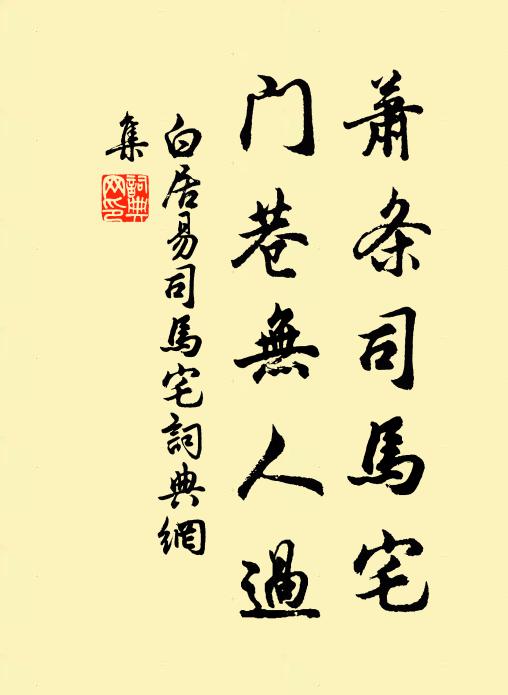 蕭条司馬宅
門巷無人過
白居易司馬宅詞典網
集
詞典
网印